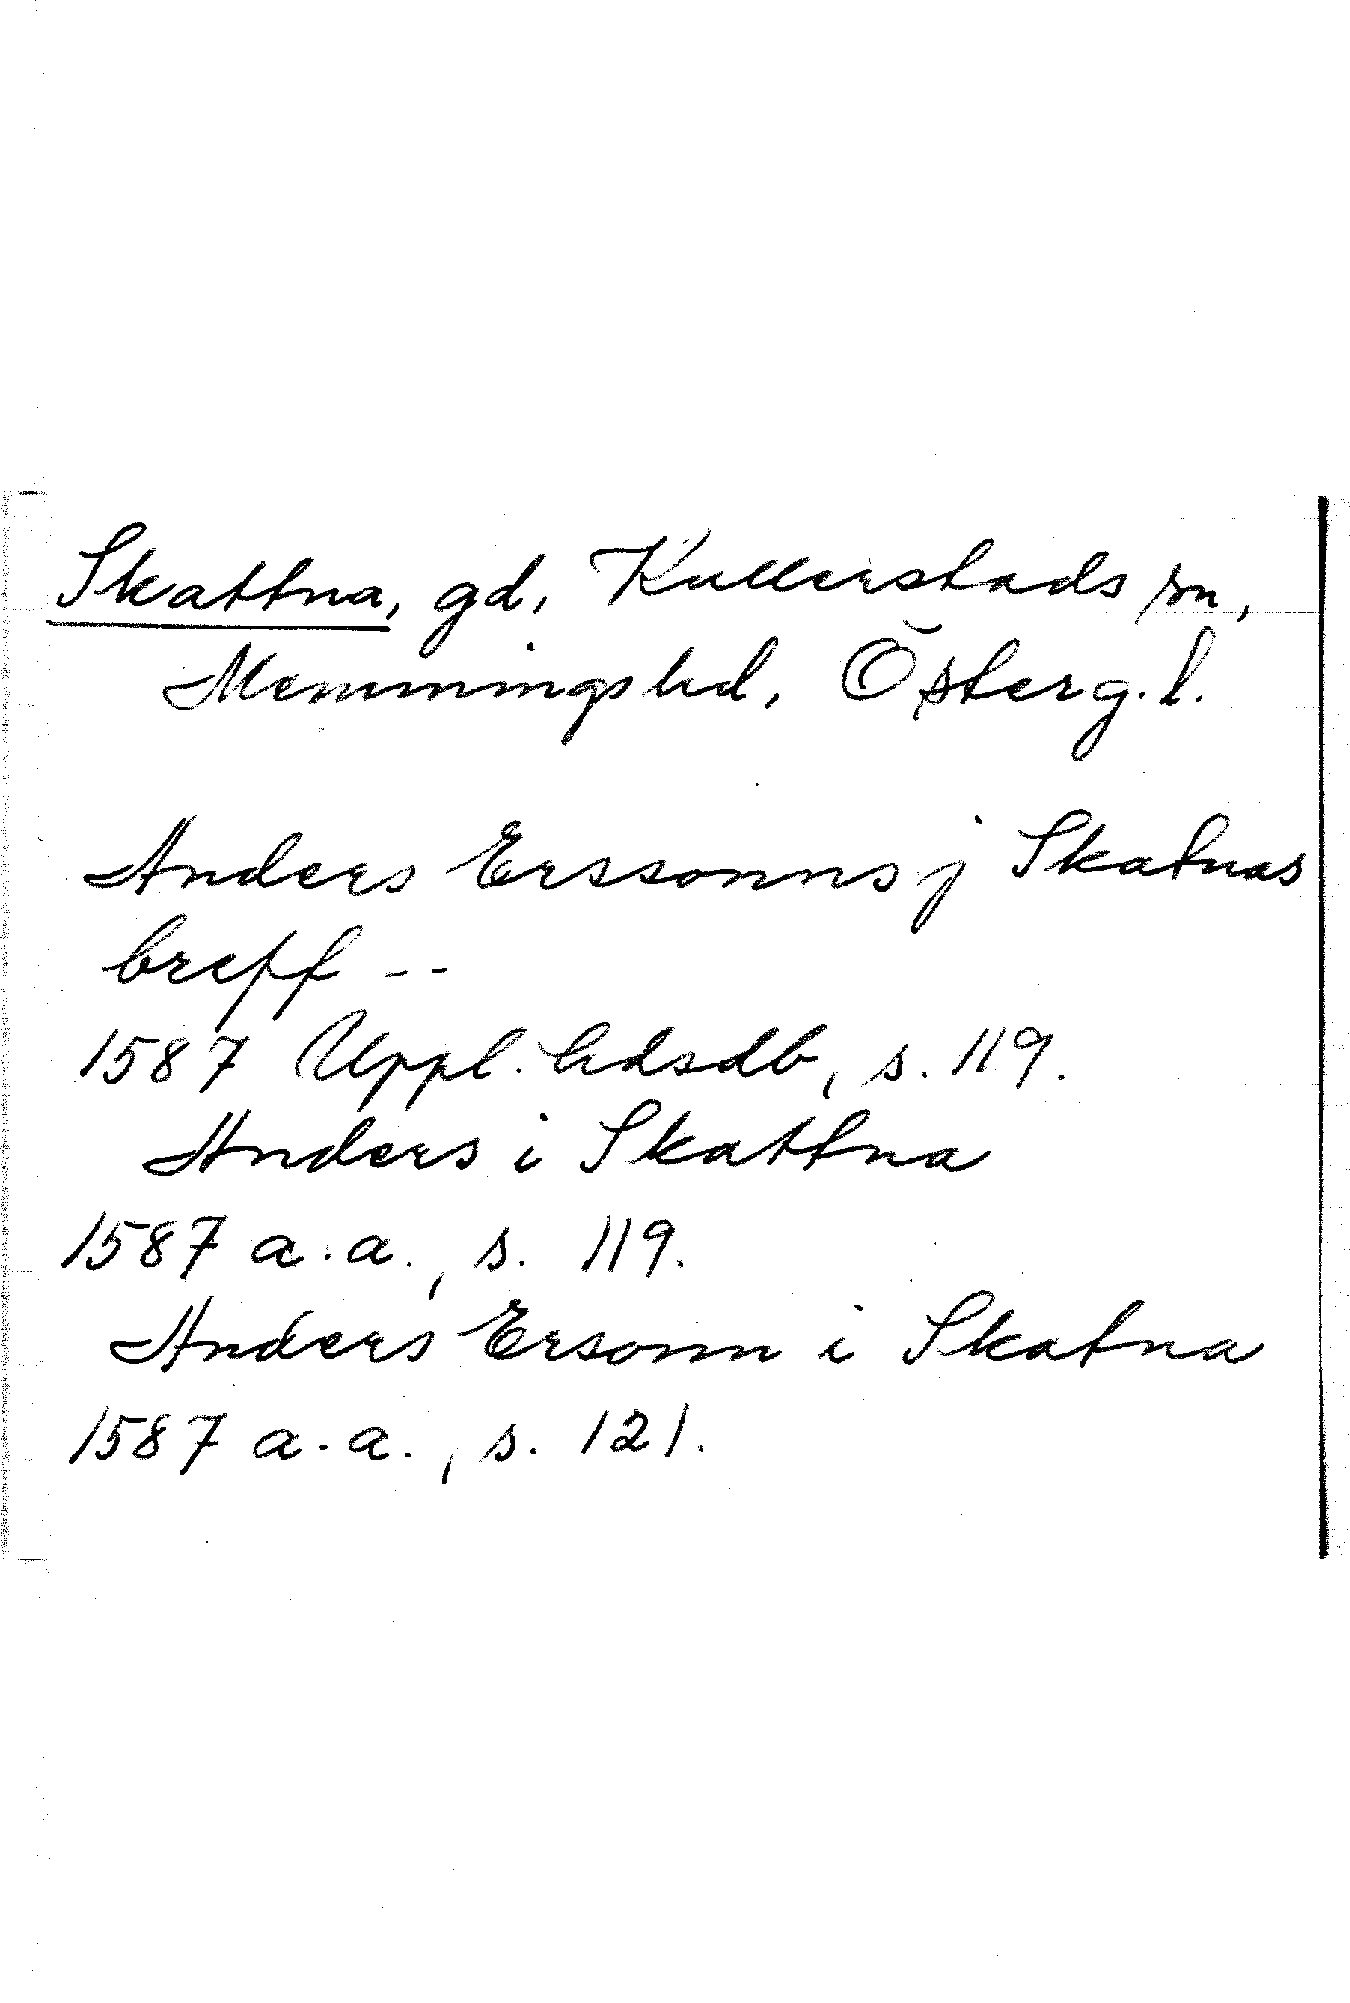 Skattna, gd, Kullerstads sn,
Memmings hd, Österg. l.
Anders Erssonns j Skatnas
breff --
1587 Uppl. hdsdb, s. 119.
Anders i Skattna
1587 a.a., s. 119.
Anders Ersonn i Skatna
1587 a.a., s. 121.